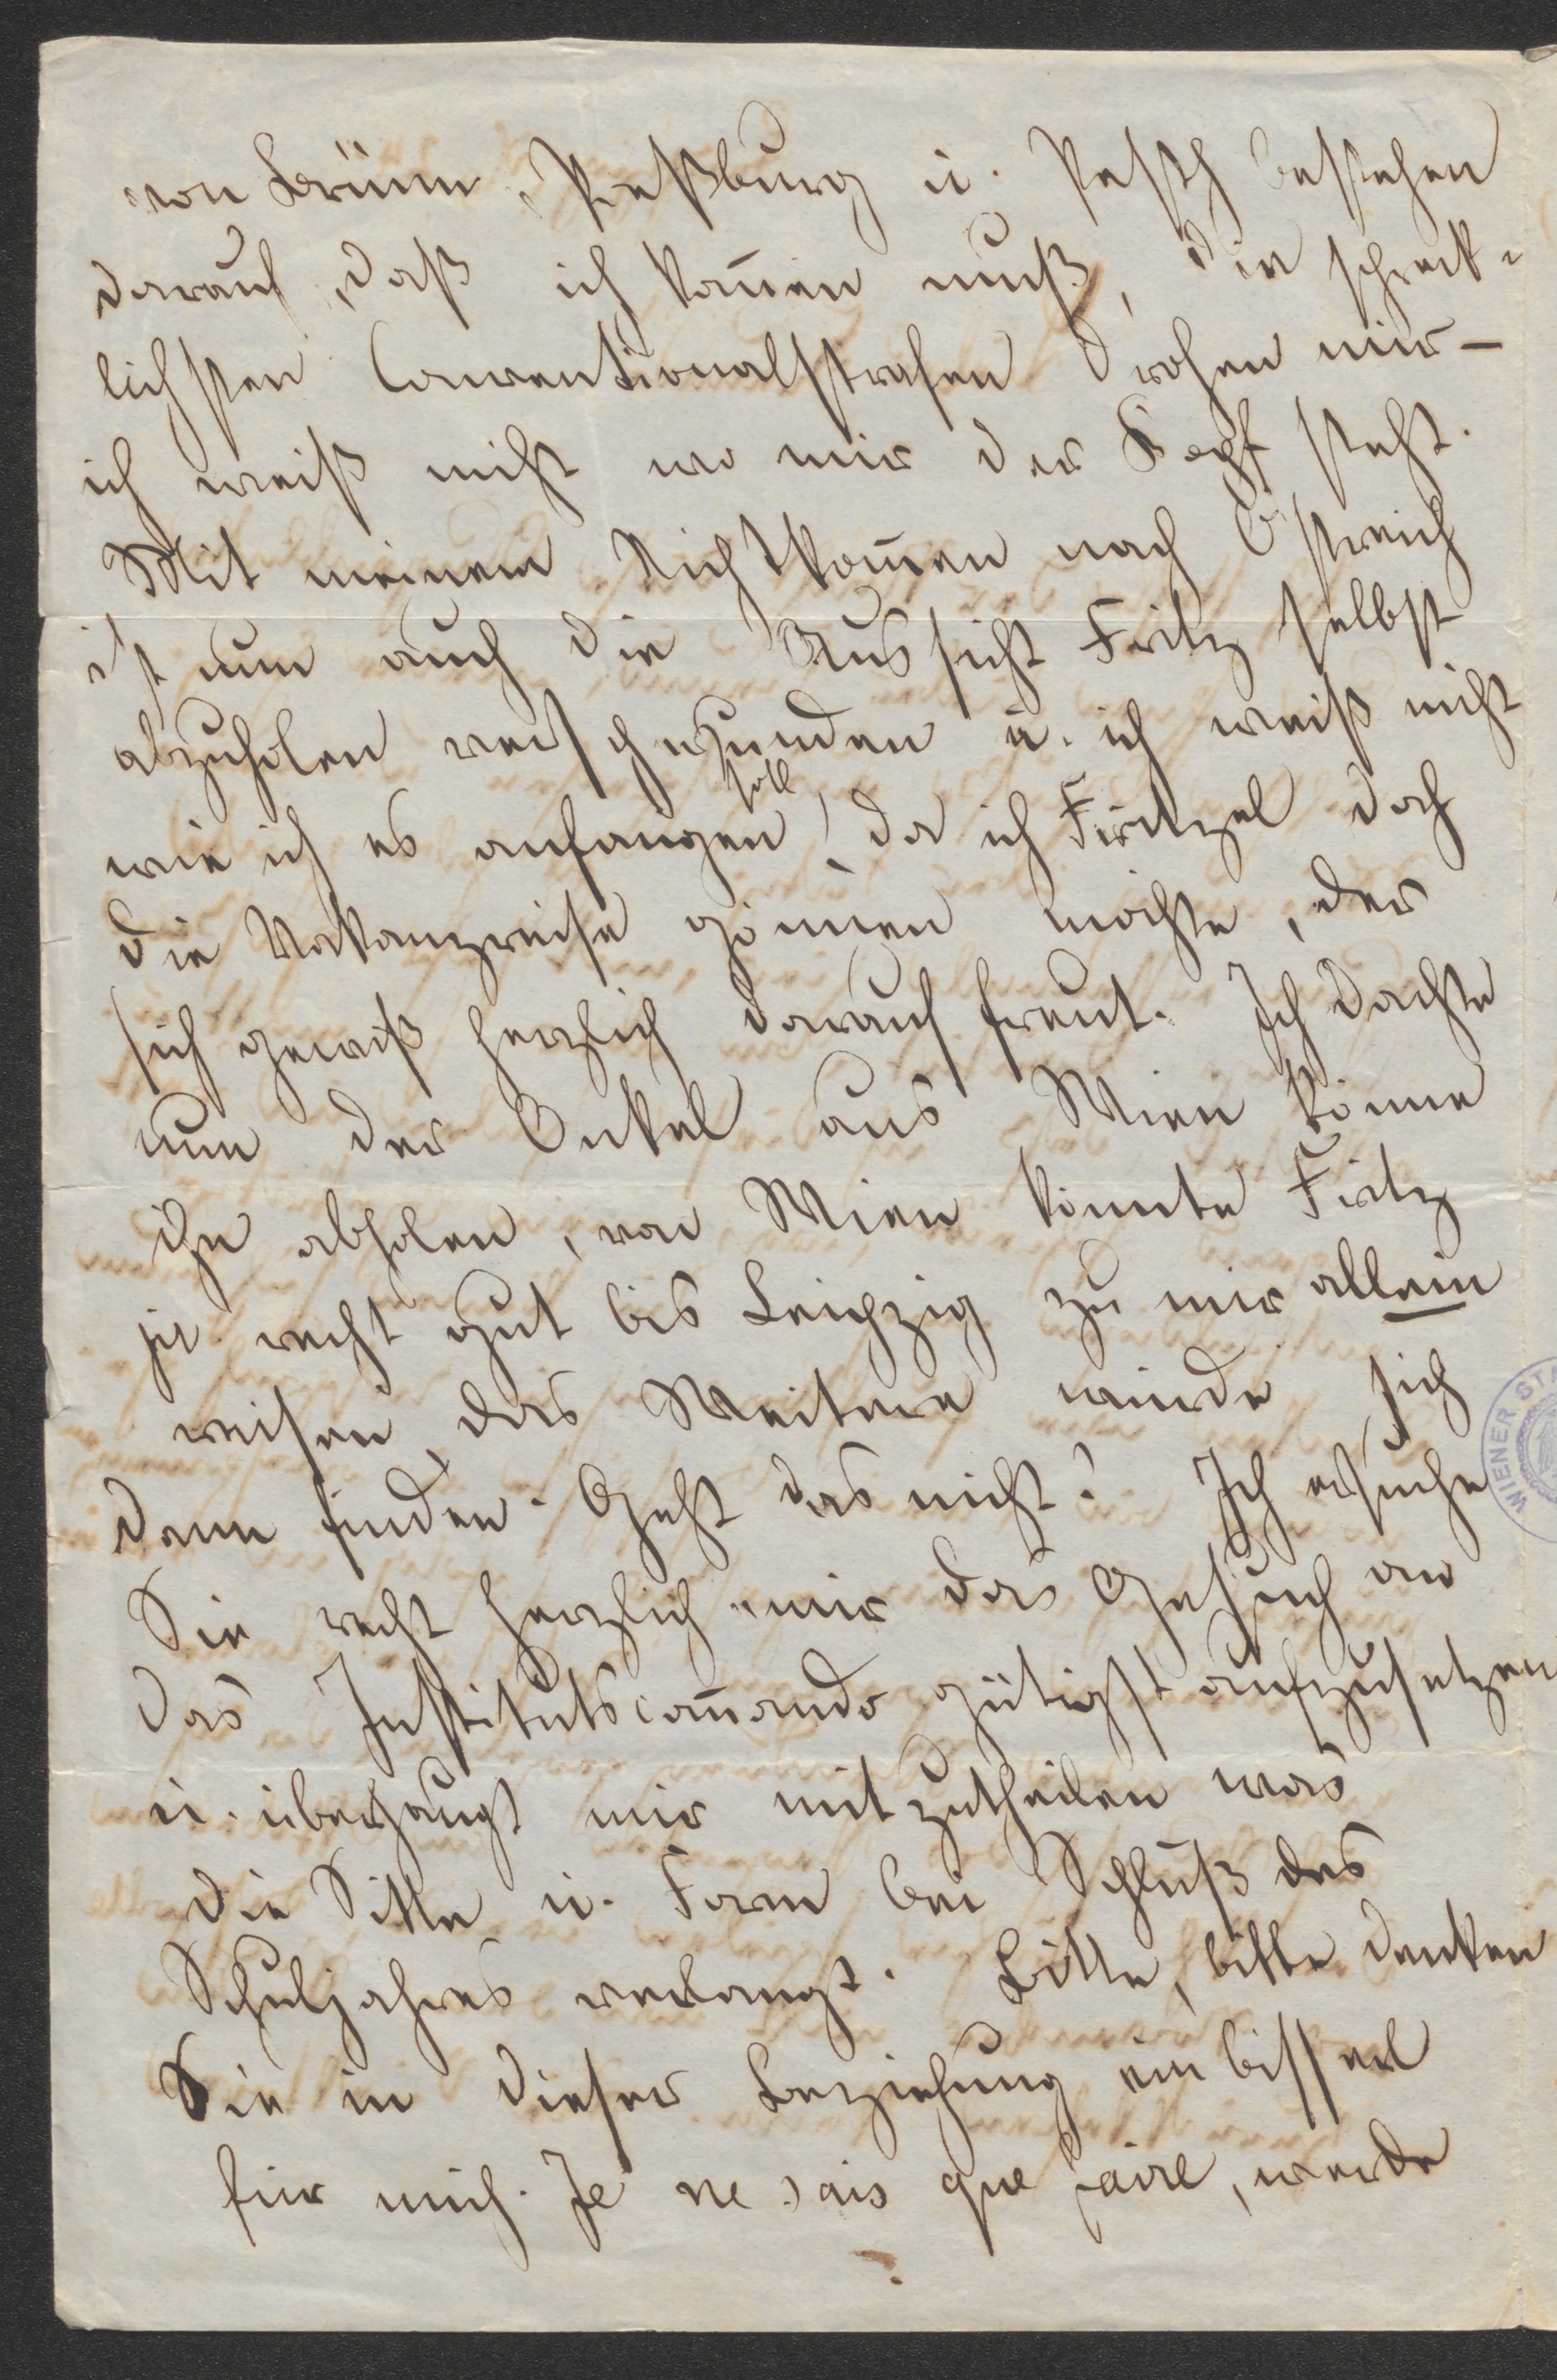 von Brünn, Preßburg u. Pesth bestehen
darauf, daß ich kom̅en muß, die schreck-
lichsten Conventionalstrafen drohen mir –
ich weiß nicht wo mir der Kopf steht.
Mit meinem Nichtkom̅en nach Östreich
ist nun auch die Aussicht Fritz selbst
abzuholen verschwunden u. ich weiß nicht
soll
wie ich es anfangen, da ich Fritzel doch
die Vakanzreise gönnen möchte, der
sich gewiß herzlich darauf freut. Ich dachte
nun der Onkel aus Wien könne
ihn abholen, von Wien könnte Fritz
ja recht gut bis Leipzig zu mir allein
reisen, das Weitere würde sich
dann finden. Geht das nicht? Ich ersuche
Sie recht herzlich mir das Gesuch an
das Institutscom̅ando gütigst aufzusetzen
u. überhaupt mir mitzutheilen was
die Sitte u. Form bei Schluß des
Schuljahres verlangt. Bitte, bitte denken
Sie in dieser Beziehung ein bisserl
für mich. Je ne sais que faire, werde
WIENER STA